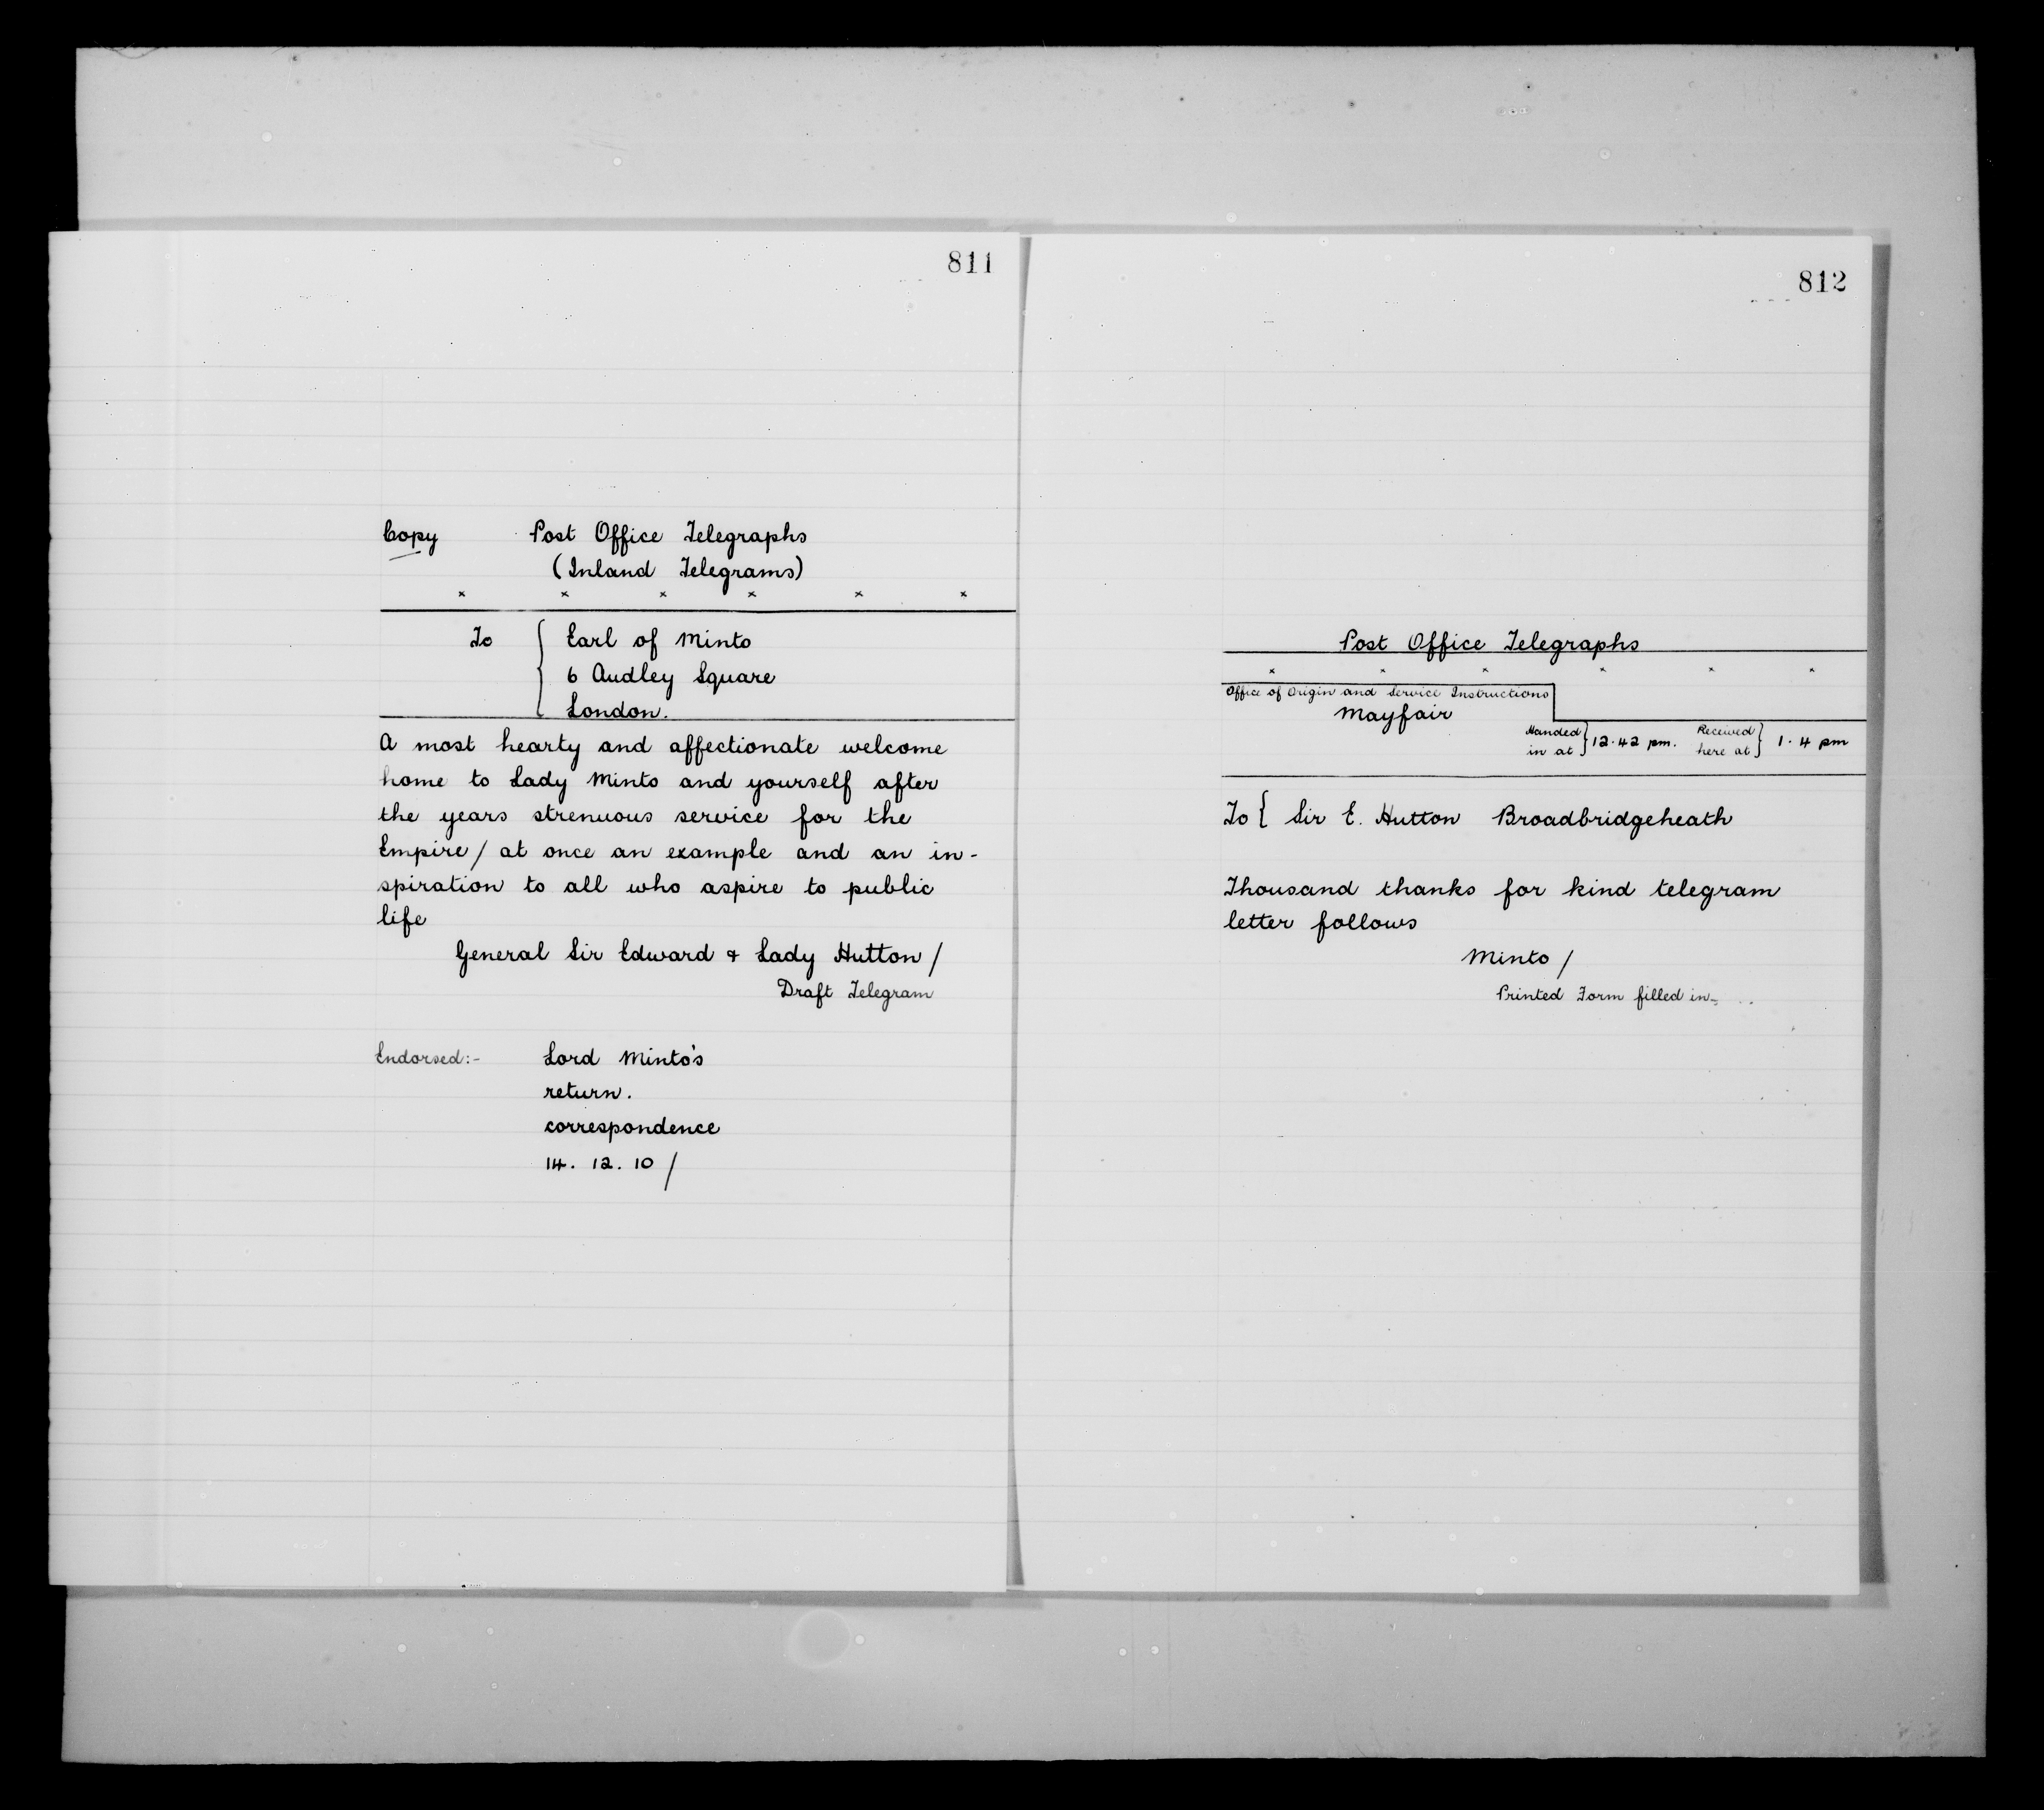 811
Copy Post Office Telegraphs
(Inland Telegrams)
× × × × × ×
To { Earl of Minto
6 Audley Square
London.
A most hearty and affectionate welcome
home to Lady Minto and yourself after
the years strenuous service for the
Empire / at once an example and an in-
spiration to all who aspire to public
life
General Sir Edward & Lady Hutton /
Draft Telegram
Endorsed:- Lord Minto's
return.
correspondence
14. 12. 10 /
812
Post Office Telegraphs
× × × × × ×
Office of Origin and Service Instructions
Mayfair
Handed in at } 12.42 pm. Received here at } 1.4 pm
To { Sir E. Hutton Broadbridgeheath
Thousand thanks for kind telegram
letter follows
Minto /
Printed Form filled in-